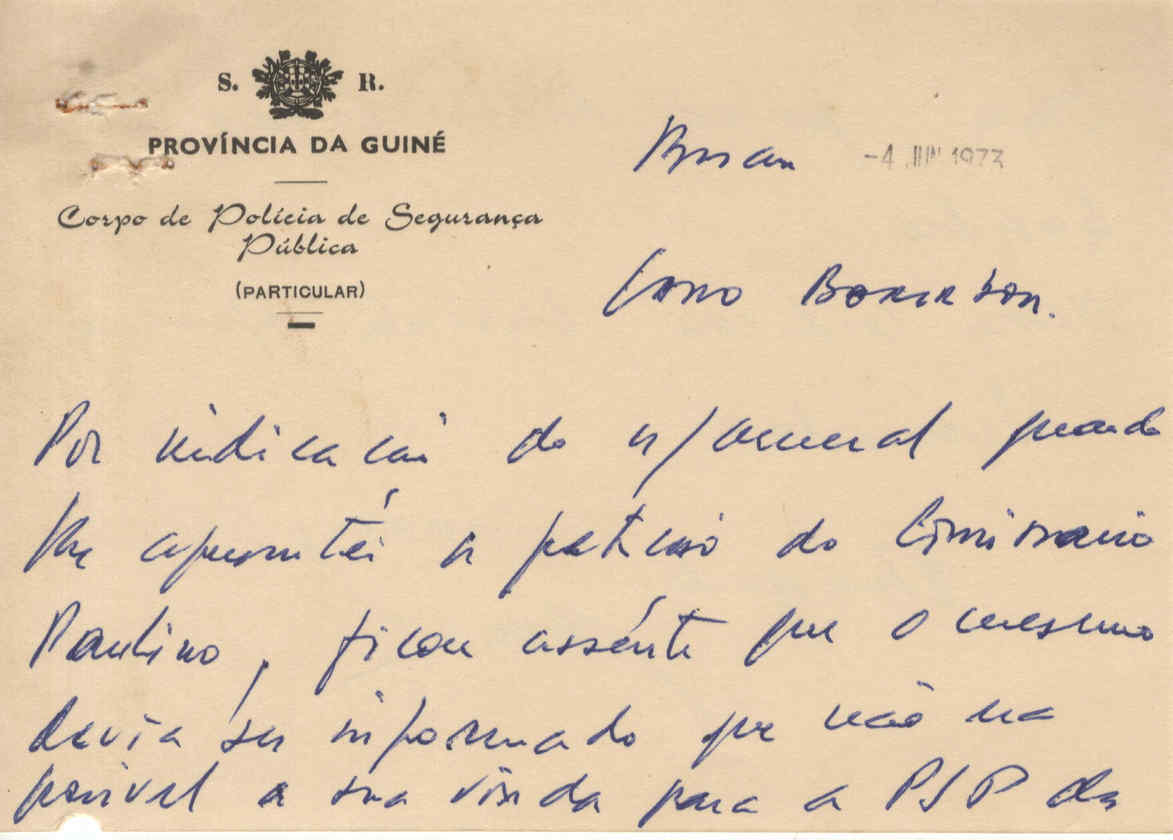 S. R.
PROVÍNCIA DA GUINÉ
Corpo de Polícia de Segurança
Pública
(PARTICULAR)
Bissau -4 JUN 1973
Caro
Por indicação do n/General quando
lhe apresentei a petição do Comissário
Paulino, ficou assente que o mesmo
devia ser informado que não era
possível a sua vinda para a PSP da